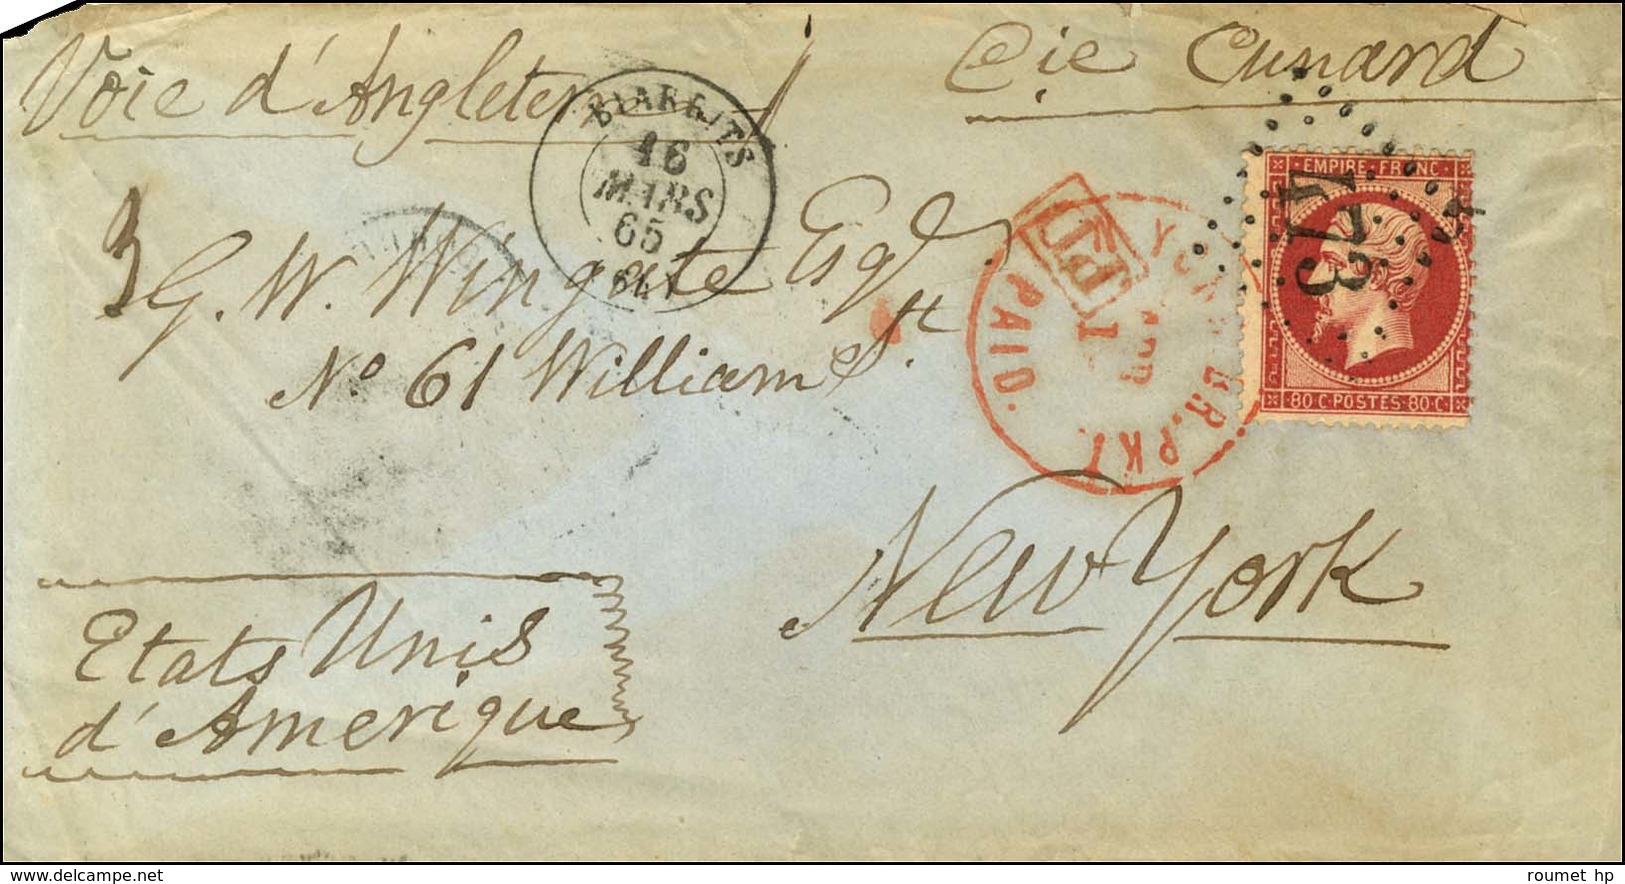 Voie d'Angleterre
Cie Cunard
BIARRITS
16
MARS
65
EMPIRE FRANC
473
80 C·POSTES·80 C
P.D.
PAID.
BR. PKT.
3
G. W. Wingate Esqr
No 61 William St.
New York
Etats Unis
d'Amerique
www.delcampe.net
roumet hp